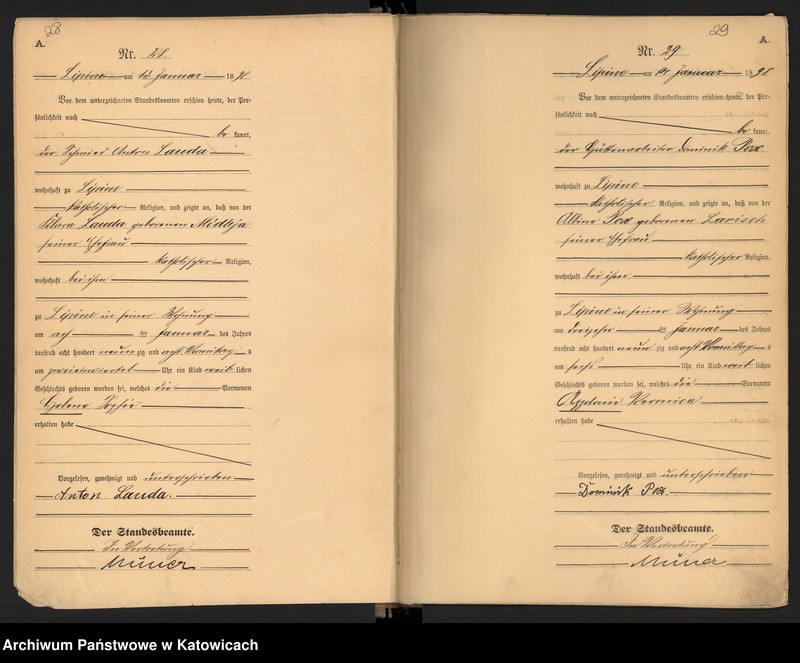 28
A.
Nr. 28
Lipine am 13. Januar 1898
Vor dem unterzeichneten Standesbeamten erschien heute, der Per-
sönlichkeit nach
be kannt,
der Schmied Anton Lauda
wohnhaft zu Lipine
katholischer Religion, und zeigte an, daß von der
Klara Lauda geborenen
seiner Ehefrau
katholischer Religion,
wohnhaft bei ihm
zu Lipine in seiner Wohnung
am ten Januar des Jahres
tausend acht hundert neun zig und acht Vormittag s
um Uhr ein Kind weib lichen
Geschlechts geboren worden sei, welches die Vornamen
Helene Sophie
erhalten habe
Vorgelesen, genehmigt und unterschrieben
Anton Lauda.
Der Standesbeamte.
In Vertretung
29
A.
Nr. 29
Lipine am 14. Januar 1898
Vor dem unterzeichneten Standesbeamten erschien heute, der Per-
sönlichkeit nach
be kannt,
der Hüttenarbeiter Dominik Pox
wohnhaft zu Lipine
katholischer Religion, und zeigte an, daß von der
Albine Pox geborenen Larisch
seiner Ehefrau
katholischer Religion,
wohnhaft bei ihm
zu Lipine in seiner Wohnung
am ten Januar des Jahres
tausend acht hundert neun zig und acht Vormittag s
um sechs Uhr ein Kind weib lichen
Geschlechts geboren worden sei, welches die Vornamen
Veronica
erhalten habe
Vorgelesen, genehmigt und unterschrieben
Dominik Pox.
Der Standesbeamte.
In Vertretung
Archiwum Państwowe w Katowicach